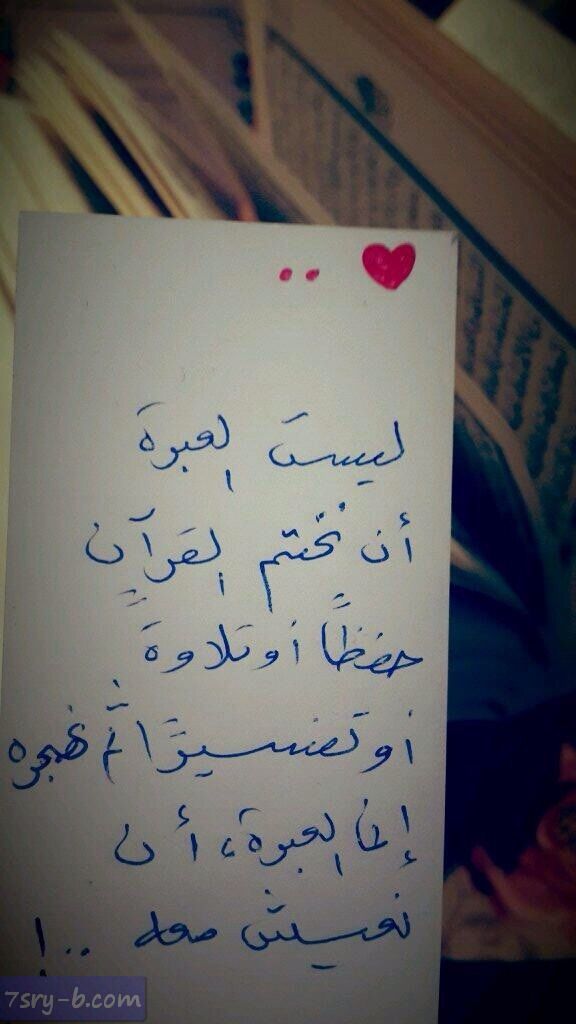 ليست العبرة
أن نختم القرآن
حفظاً أو تلاوة
أو تفسيراً ثم نهجره
إن العبرة، أن
نعيش معه ..!
7sry-b.com